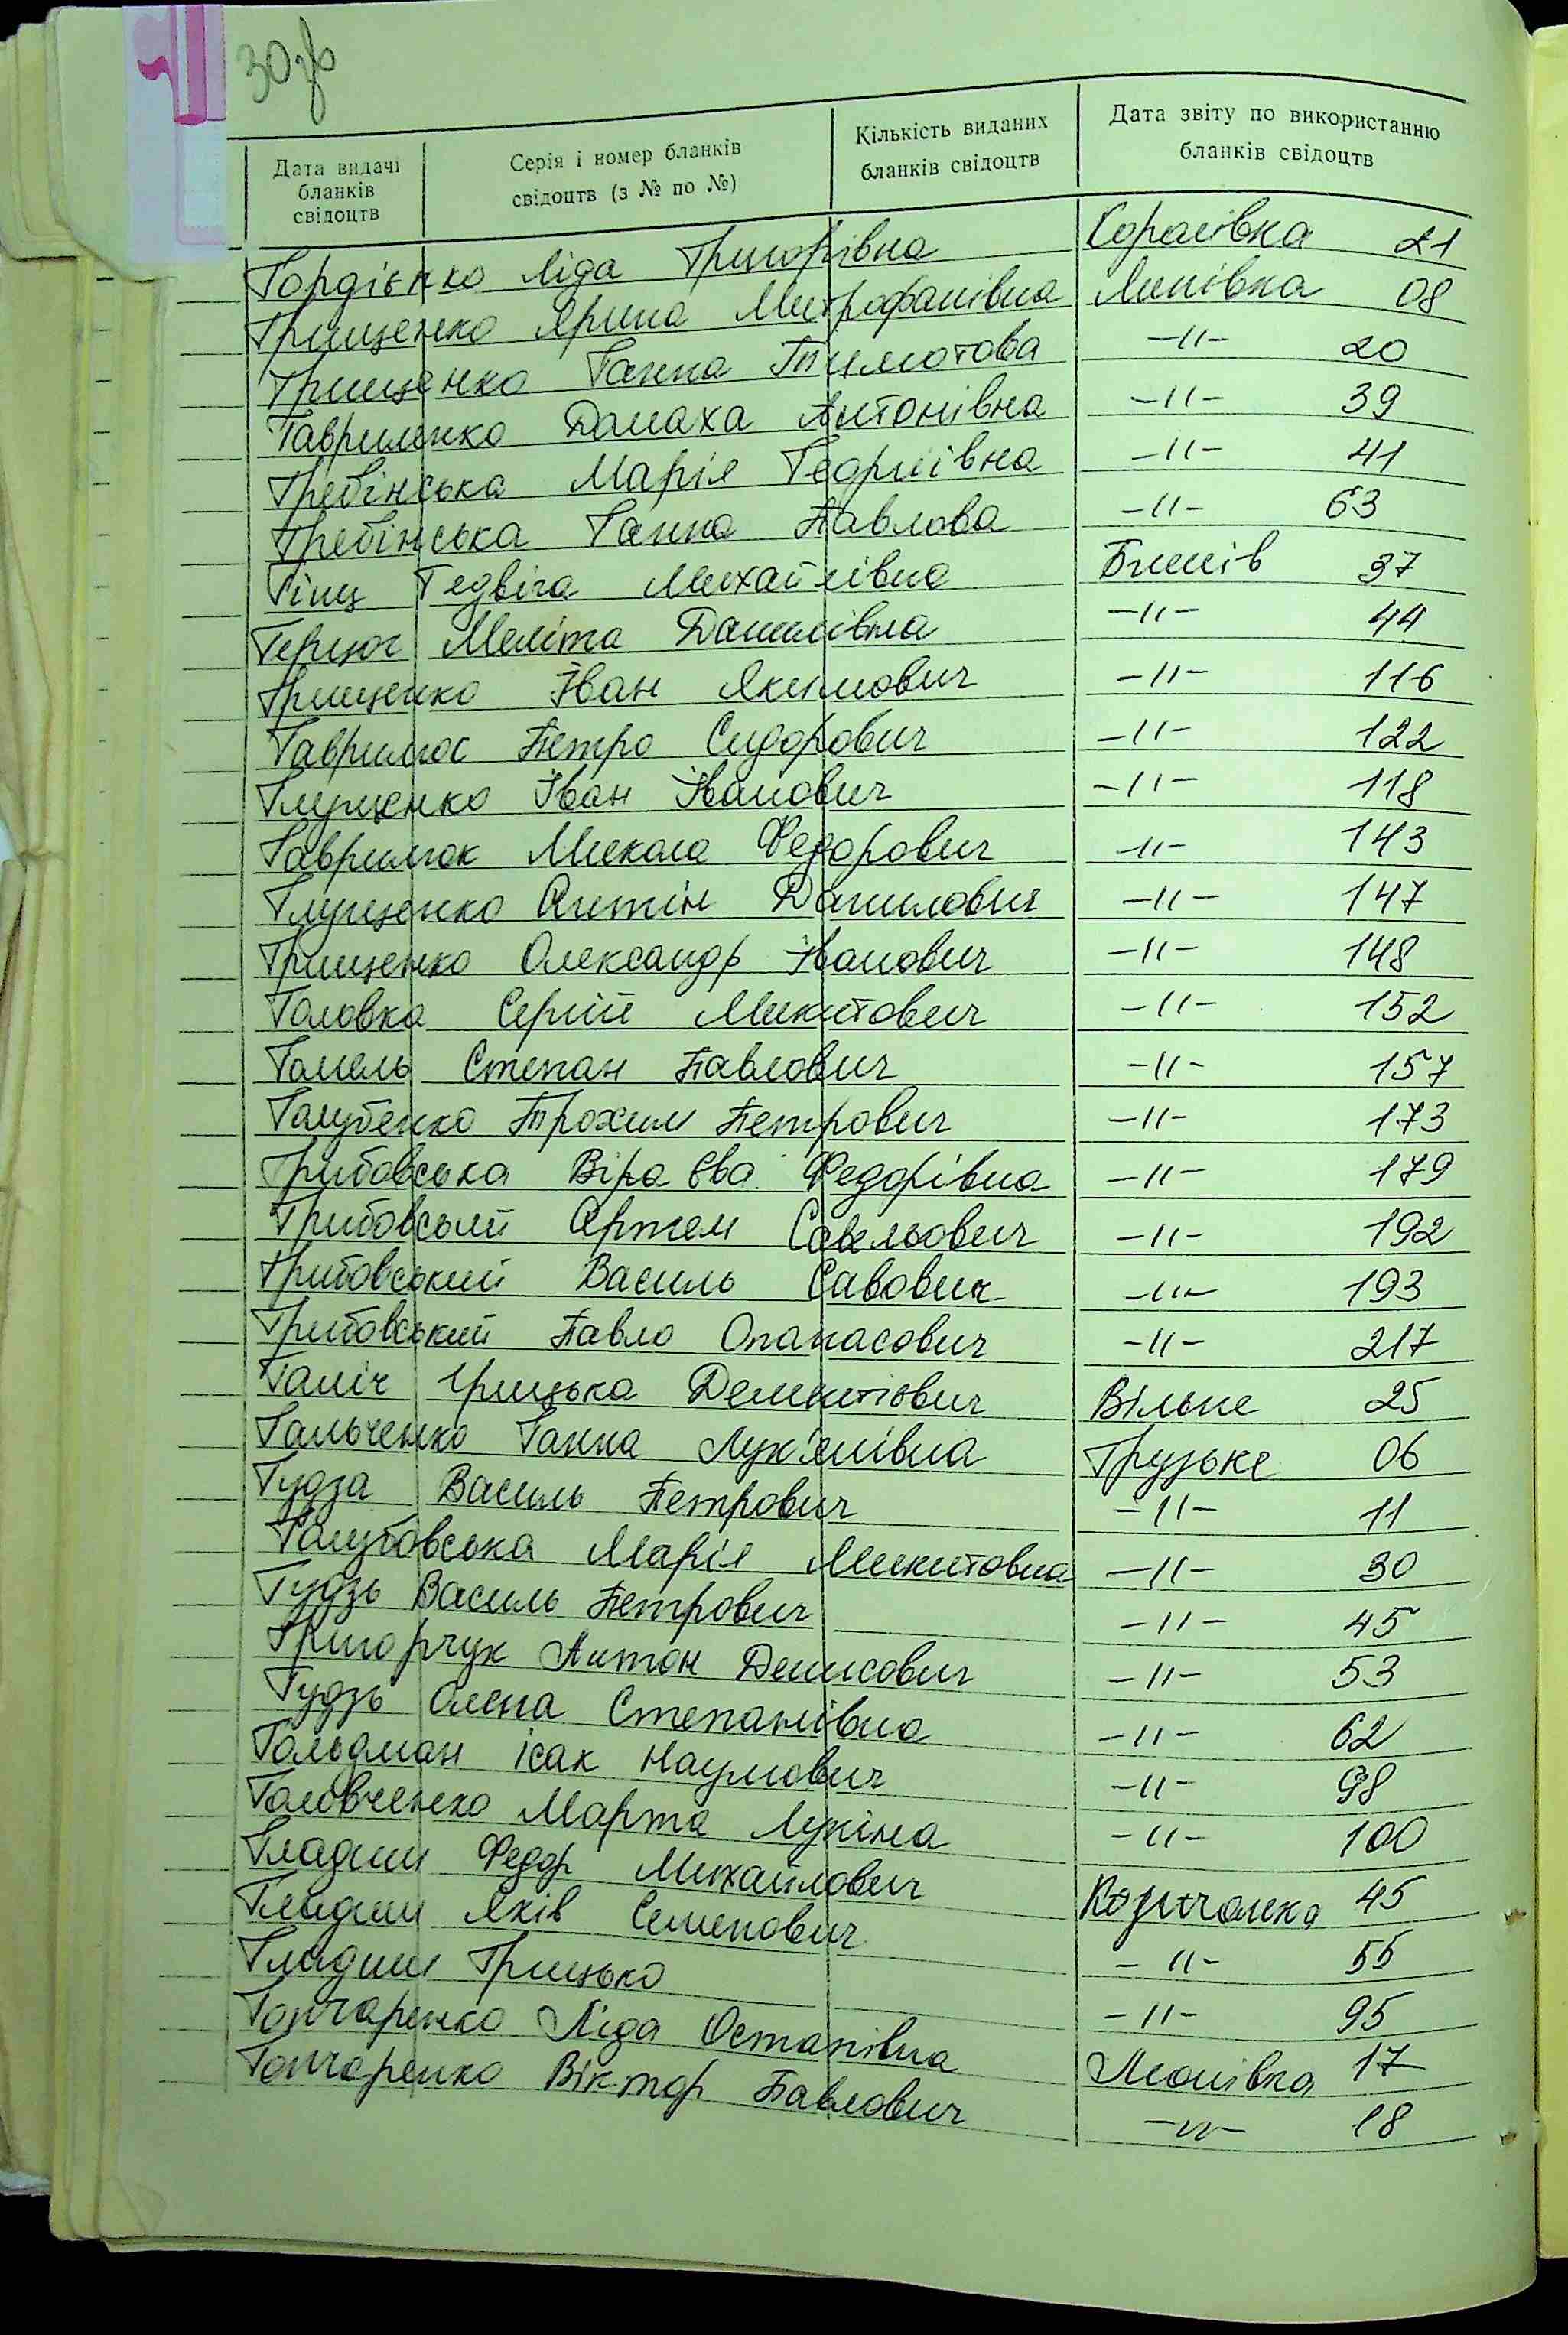 30зв
Дата видачі бланків свідоцтв
Серія і номер бланків свідоцтв (з № по №)
Кількість виданих бланків свідоцтв
Дата звіту по використанню бланків свідоцтв
Гордієнко Ліда Григорівна Королівка 21
Грищенко Ярина Митрофанівна Липівка 08
Грищенко Ганна Тимотова -//- 20
Гавриленко Домаха Антонівна -//- 39
Гребінська Марія Георгіївна -//- 41
Гребінська Ганна Павлова -//- 63
Гінц Гедвіга Михайлівна Бишів 37
Герцог Меліта Данилівна -//- 44
Грищенко Іван Якимович -//- 116
Гаврилюс Петро Сидорович -//- 122
Глущенко Іван Іванович -//- 118
Гаврилюк Микола Федорович -//- 143
Глущенко Антін Данилович -//- 147
Грищенко Олександр Іванович -//- 148
Головка Сергій Микитович -//- 152
Гомель Степан Павлович -//- 157
Голубенко Трохим Петрович -//- 173
Грибовська Віра Єва Федорівна -//- 179
Грибовсьий Артем Савельович -//- 192
Грибовський Василь Савович -//- 193
Грибовський Павло Опанасович -//- 217
Галіч Грицька Дементієвич Вільне 25
Гальченко Ганна Лук'янівна Грузьке 06
Гудза Василь Петрович -//- 11
Голубовська Марія Микитовна -//- 30
Гудзь Василь Петрович -//- 45
Григорчук Антон Денисович -//- 53
Гудзь Олена Степанівна -//- 62
Гольдман Ісак Наумович -//- 98
Головченко Марта Лукіна -//- 100
Гладиш Федор Михайлович Козичанка 45
Гладиш Яків Семенович -//- 55
Гладиш Грицько -//- 95
Гончаренко Ліда Остапівна 17
Гончаренко Віктор Павлович -//- 18